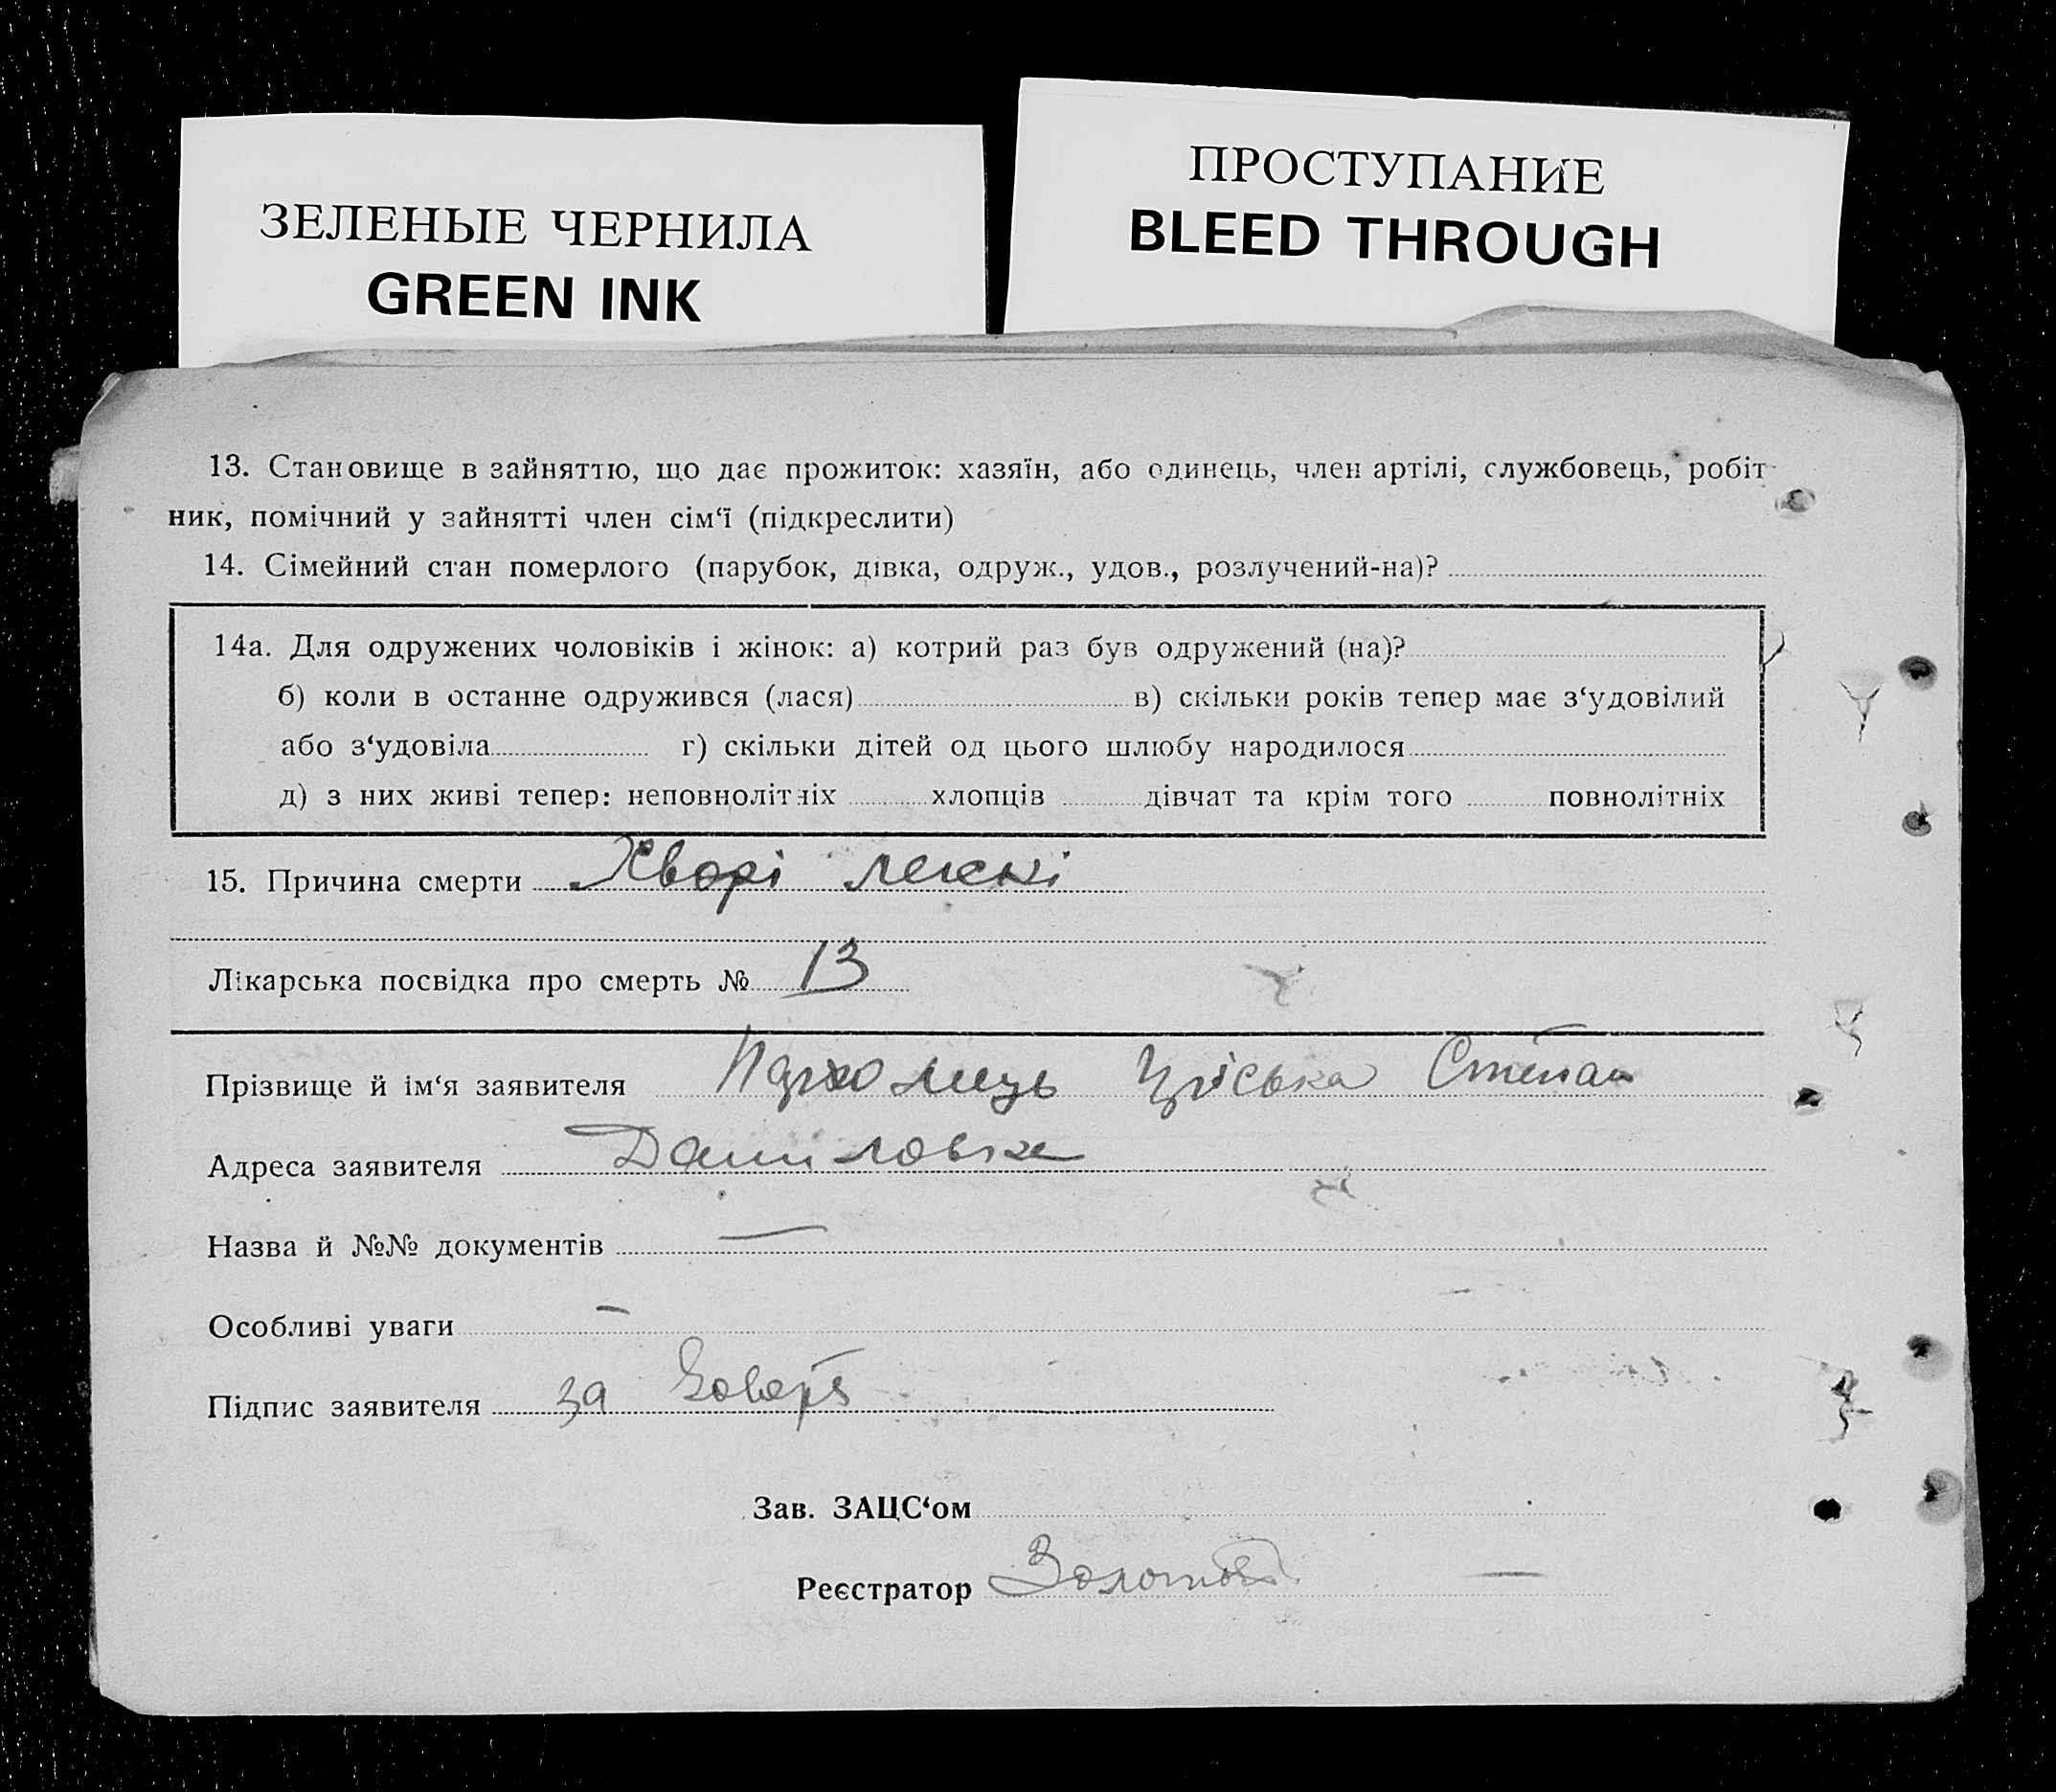 ЗЕЛЕНЫЕ ЧЕРНИЛА
GREEN INK
ПРОСТУПАНИЕ
BLEED THROUGH
13. Становище в зайняттю, що дає прожиток: хазяїн, або одинець, член артілі, службовець, робіт-
ник, помічний у зайнятті член сім‘ї (підкреслити)
14. Сімейний стан померлого (парубок, дівка, одруж., удов., розлучений-на)?
14а. Для одружених чоловіків і жінок: а) котрий раз був одружений (на)?
б) коли в останне одружився (лася) в) скільки років тепер має з‘удовілий
або з‘удовіла г) скільки дітей од цього шлюбу народилося
д) з них живі тепер: неповнолітніх хлопців дівчат та крім того повнолітніх
15. Причина смерти Хворі легкі
Лікарська посвідка про смерть № 13
Прізвище й ім‘я заявителя Степан
Адреса заявителя Даниловка
Назва й №№ документів —
Особливі уваги —
Підпис заявителя за
Зав. ЗАЦС‘ом
Реєстратор —